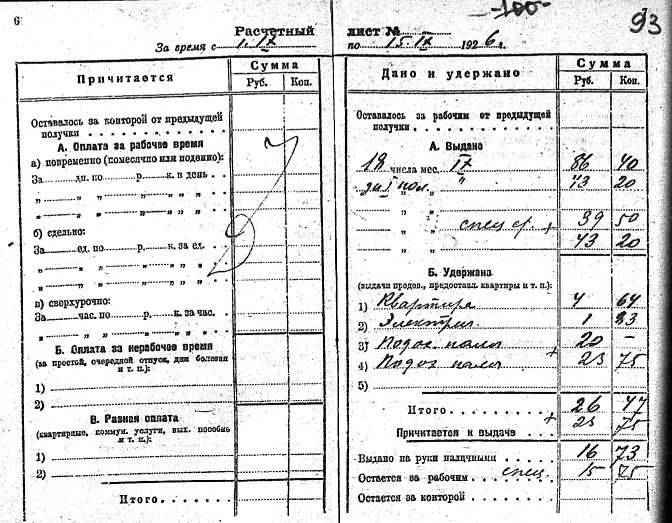 100
93
6
Расчетный
За время с 1. IX
Причитается
Сумма
Руб. Коп.
Оставалось за конторой от предыдущей
получки
А. Оплата за рабочее время
а) повременно (помесячно или поденно):
За дн. по р. к. в день
" " " " " "
" " " " " "
б) сдельно:
За ед. по р. к. за ед.
" " " " " "
" " " " " "
в) сверхурочно:
За час. по р. к. за час.
" " " " " "
Б. Оплата за нерабочее время
(за простой, очередной отпуск, дни болезни
и т. п.):
1)
2)
В. Разная оплата
(квартирные, коммун. услуги, вых. пособие
и т. п.):
1)
2)
Итого
лист №
по 15. IX 1926 г.
Дано и удержано
Сумма
Руб. Коп.
Оставалось за рабочим от предыдущей
получки
А. Выдано
18 числа мес. IX 86 40
за I пол. " 43 20
" " спец 39 50
" " 43 20
Б. Удержано
(выдачи продов., предоставл. квартиры и т. п.):
1) Квартира 4 64
2) Электрич. 1 83
3) 20 -
4) 23 75
5)
Итого 26 47
Причитается к выдаче 23 75
Выдано на руки наличными 16 73
Остается за рабочим спец 15 75
Остается за конторой